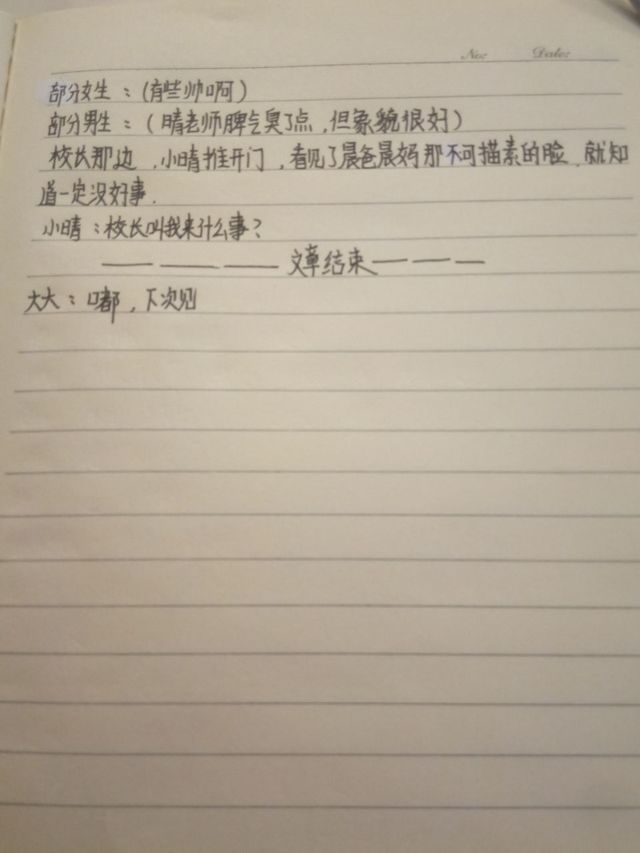 No: Date:
部分女生：（有些帅啊）
部分男生：（晴老师脾气臭了点，但象貌很好）
校长那边，小晴推开门，看见了晨爸晨妈那不可描素的脸，就知
道一定没好事．
小晴：校长叫我来什么事？
— — — 文章结束 — — —
大大：嘟，下次见